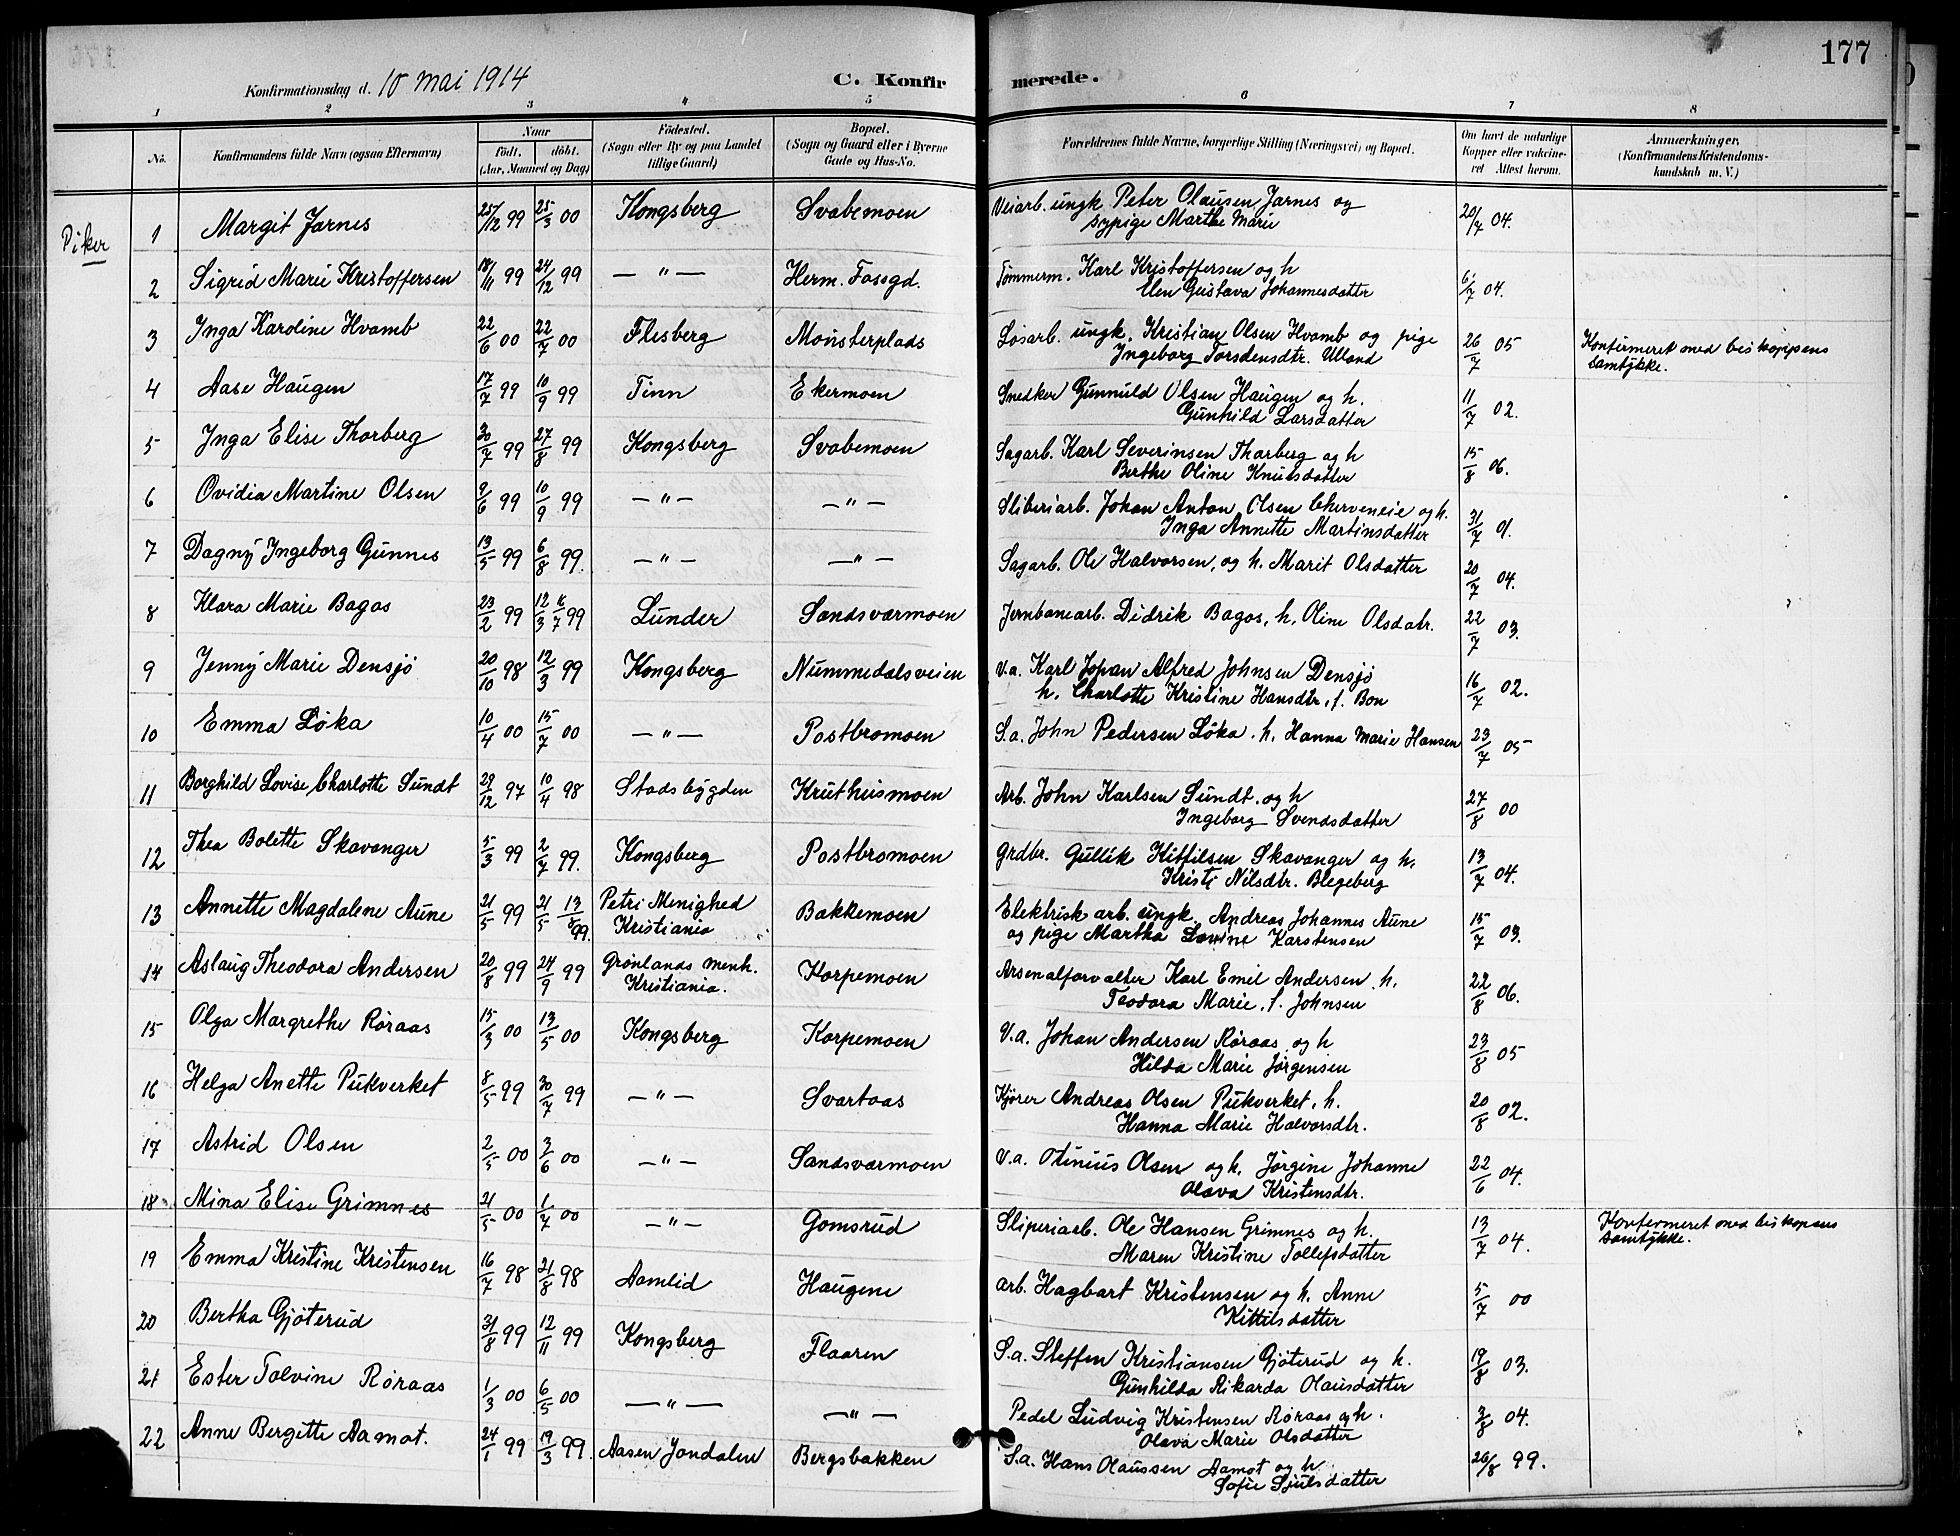 177
Konfirmationsdag d. 10 mai 1914 C. Konfirmerede.
1 2 3 4 5 6 7 8
No. Konfirmandens fulde Navn (ogsaa Efternavn) Naar født. døbt. (Aar, Maaned og Dag) Fødested. (Sogn eller By og paa Landet tillige Gaard) Bopæl. (Sogn og Gaard eller i Byerne Gade og Hus-No. Forældrenes fulde Navne, borgerlige Stilling (Næringsvei) og Bopæl. Om havt de naturlige Kopper eller vakcineret Attest herom. Anmerkninger, (Konfirmandens Kristendomskundskab m. V.)
Piker
1 Margit Jarnes 25/12 99 25/3 00 Kongsberg Svabemoen Veiarb. ungk Peter Olausen Jarnes og
sypige Marthe Marie 20/7 04.
2 Sigrid Marie Kristoffersen 18/11 99 24/12 99 — " — Herm. Fossgd. Tømmerm. Karl Kristoffersen og h
Elen Gustava Johannesdatter 6/7 04.
3 Inga Karoline Hvamb 22/6 00 22/7 00 Flesberg Mønsterplads Løsarb. ungk. Kristian Olsen Hvamb og pige
Ingeborg Torsdensdtr. Ulland 26/7 05 Konfirmeret med biskoppens
samtykke.
4 Aase Haugen 17/7 99 10/9 99 Tinn Ekermoen Snedker Gunnuld Olsen Haugen og h.
Gunhild Larsdatter 11/7 02.
5 Inga Elise Thorberg 30/7 99 27/8 99 Kongsberg Svabemoen Sagarb. Karl Severinsen Thorberg og h
Berthe Oline Knutsdatter 15/8 06.
6 Ovidia Martine Olsen 9/6 99 10/9 99 — " — — " — Sliberiarb. Johan Anton Olsen og h.
Inga Annette Martinsdatter 31/7 01.
7 Dagny Ingeborg Gunnes 13/5 99 6/8 99. — " — — " — Sagarb. Ole Halvorsen, og h. Marit Olsdatter 20/7 04.
8 Klara Marie Bagos 23/2 99 12/3 6/7 99 Lunder Sandsværmoen Jernbanearb. Didrik Bagos, h. Oline Olsdatr. 22/7 03.
9 Jenny Marie Densjø 20/10 98 12/3 99 Kongsberg Nummedalsveien V.a. Karl Johan Alfred Johnsen Densjø
h. Charlotte Kristine Hansdtr. f. Bon 16/7 02.
10 Emma Løka 10/4 00 15/7 00 — " — Postbromoen S.a. John Pedersen Løka. h. Hanna Marie Hansen 23/7 05
11 Borghild Lovise Charlotte Sundt 29/12 97 10/4 98 Stadsbygden Kruthusmoen Arb. John Karlsen Sundt. og h
Ingeborg Svendsdatter 27/8 00
12 Thea Bolette Skavanger 5/3 99 2/7 99. Kongsberg Postbromoen Grdbr. Gullik Kittilsen Skavanger og h.
Kristi Nilsdtr. Blegeberg 13/7 04.
13 Annette Magdalene Aune 21/5 99 21/5 13/8 99. Petri Menighed
Kristiania Bakkemoen Elektrisk arb. ungk. Andreas Johannes Aune
og pige Martha Lovine Karstensen 15/7 03.
14 Aslaug Theodora Andersen 20/8 99 24/9 99 Grønlands menh.
Kristiania. Korpemoen Arsenalforvalter Karl Emil Andersen. h.
Teodora Marie. f. Johnsen 22/8 06.
15 Olga Margrethe Røraas 15/3 00 13/5 00 Kongsberg Korpemoen V.a. Johan Andersen Røraas og h
Hilda Marie Jørgensen 23/8 05
16 Helga Anette Pukverket 8/5 99 30/7 99 — " — Svartaas Kjører Andreas Olsen Pukverket. h.
Hanna Marie Halvorsdtr. 20/8 02.
17 Astrid Olsen 2/5 00 3/6 00 — " — Sandsværmoen V.a. Otinius Olsen og h. Jørgine Johanne
Olava Kristensdtr. 22/6 04.
18 Mina Elise Grimnes 21/5 00 1/7 00 — " — Gomsrud Sliperiarb. Ole Hansen Grimnes og h.
Maren Kristine Tollefsdatter 13/7 04. Konfirmeret med biskopens
samtykke.
19 Emma Kristine Kristensen 16/7 98 21/8 98 Aamlid Haugene arb. Hagbart Kristensen og h. Anne
Kittilsdatter 5/7 00
20 Bertha Gjøterud 31/8 99 12/11 99 Kongsberg Flaaren S.a. Steffen Kristiansen Gjøterud og h.
Gunhilda Rikarda Olausdatter 19/8 03.
21 Ester Tolvine Røraas 1/3 00 6/5 00 — " — — " — Pedel Ludvig Kristensen Røraas og h.
Olava Marie Olsdatter 3/8 04.
22 Anne Bergitte Aamot. 24/1 99 19/3 99. Aasen Jondalen Bergsbakken S.a. Hans Olaussen Aamot og h
Sofie Sjulsdatter 26/8 99.